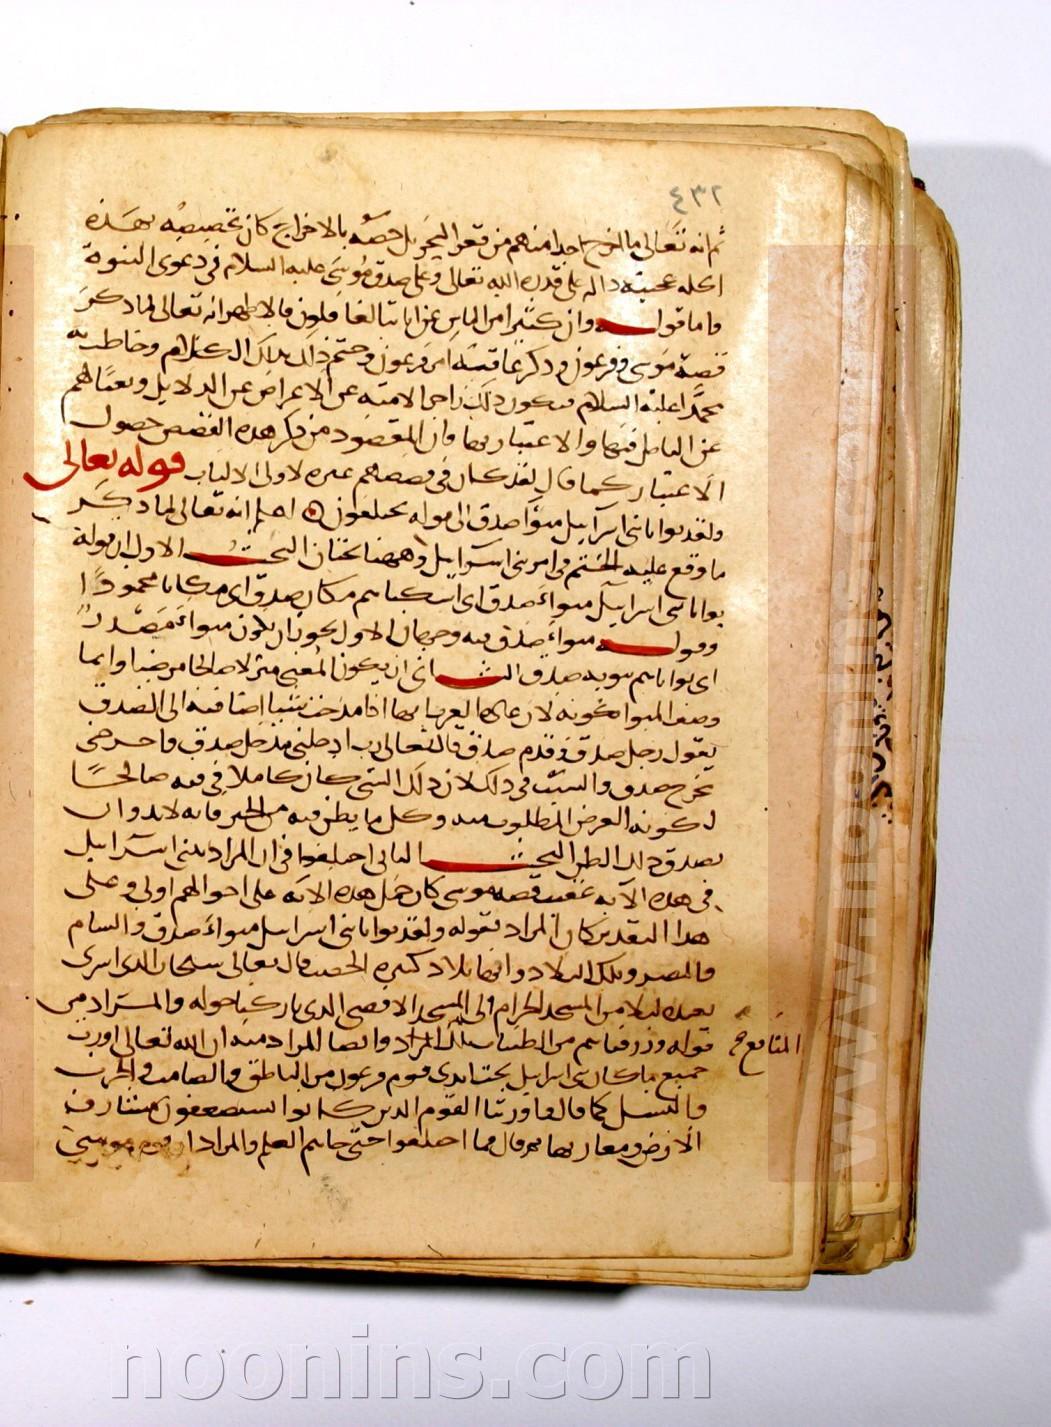 ٤٣٢
ثم انه تعالى ما اخرج احدا منهم من قعر البحر بل خصه بالاخراج كان تخصيصه بهذه
الحالة عجيبة دالة على قدرة الله تعالى وعلى صدق موسى عليه السلام في دعوى النبوة
واما قوله وان كثيرا من الناس عن اياتنا لغافلون فالاظهر انه تعالى لما ذكر
قصة موسى وفرعون وذكر عاقبة امر فرعون وختم ذلك بذلك الكلام وخاطب به
محمدا عليه السلام فيكون ذلك زاجرا لامته عن الاعراض عن الدلايل وبعثا لهم
عن التامل فيها والاعتبار بها فان المقصود من ذكر هذه القصص حصول
الاعتبار كما قال لقد كان في قصصهم عبرة لاولى الالباب قوله تعالى
ولقد بوانا بني اسراييل مبوأ صدق الى قوله يختلفون اعلم انه تعالى لما ذكر
ما وقع عليه الختم في امر بني اسراييل وههنا بحثان البحث الاول ان قوله
بوانا بني اسراييل مبواء صدق اي اسكناهم مكان صدق اي مكانا محمودا
وقوله مبواء صدق فيه وجهان الاول يجوز ان يكون مبواء مصدرا
اي بواناهم تبويه صدق الثاني ان يكون المعنى منزلا صالحا مرضيا وانما
وصف المبوا بكونه لان عادة العرب انها اذا مدحت شيا اضافته الى الصدق
تقول رجل صدق وقدم صدق قال تعالى رب ادخلني مدخل صدق واخرجني
مخرج صدق والسبب في ذلك لان ذلك الشي كان كاملا في فيه صالحا
لكونه الغرض المطلوب منه وكل ما يظن فيه من الخير فانه لابد وان
يصدق ذلك الظن البحث الثاني اختلفوا في ان المراد ببني اسراييل
في هذه الآية عقيب قصة موسى كان حمل هذه الآية على احوالهم اولى وعلى
هذا التقدير كان المراد بقوله ولقد بوانا بني اسراييل مبواء صدق والشام
والمصر وتلك البلاد وانها بلاد كثيرة الخصب قال تعالى سبحان الذي اسرى
بعبده ليلا من المسجد الحرام الى المسجد الاقصى الذي باركنا حوله والمراد من
قوله ورزقناهم من الطيبات تلك وايضا المراد منه ان الله تعالى اورث
المنافع صح
جميع ما كان بني اسراييل تحت ايدي قوم فرعون من الناطق والصامت والحرث
والنسل كما قال واورثنا القوم الذين كانوا يستضعفون مشارق
الارض ومغاربها ثم قال فما اختلفوا حتى جاهم العلم والمراد ان قوم موسى
noonins.com